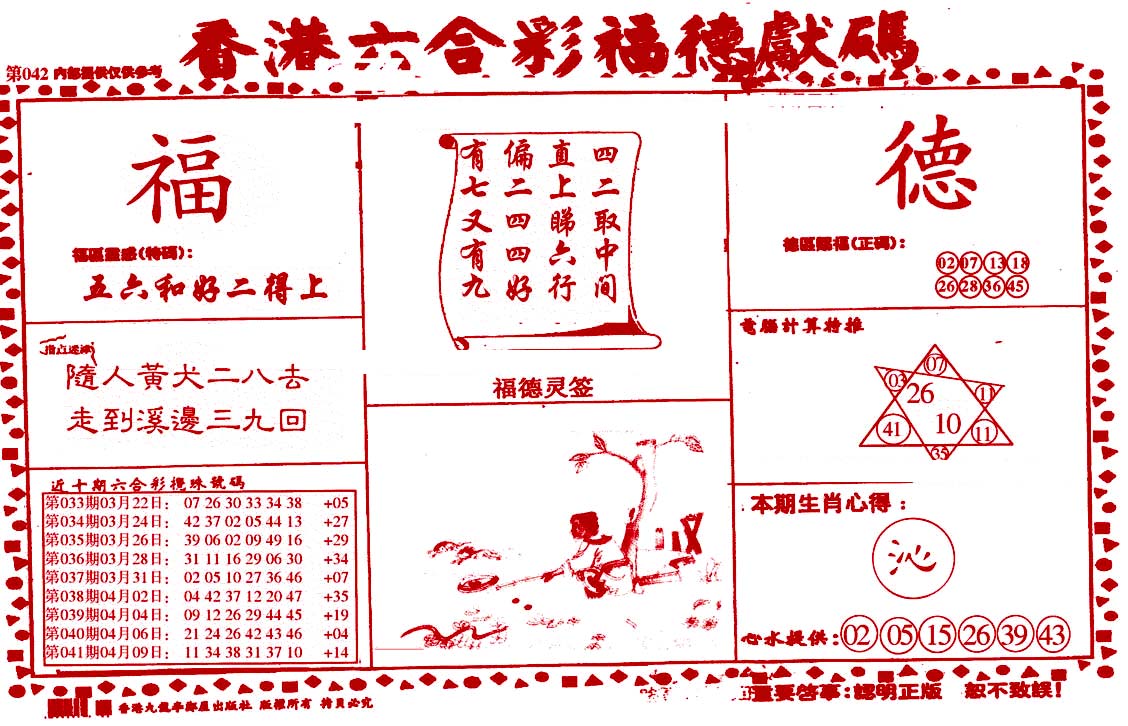 香港六合彩福德獻碼
第042 内部提供仅供参考
福
福區靈感(特碼):
五六和好二得上
隨人黃犬二八去
走到溪邊三九回
近十期六合彩攪珠號碼
第033期03月22日: 07 26 30 33 34 38 +05
第034期03月24日: 42 37 02 05 44 13 +27
第035期03月26日: 39 06 02 09 49 16 +29
第036期03月28日: 31 11 16 29 06 30 +34
第037期03月31日: 02 05 10 27 36 46 +07
第038期04月02日: 04 42 37 12 20 47 +35
第039期04月04日: 09 12 26 29 44 45 +19
第040期04月06日: 21 24 26 42 43 46 +04
第041期04月09日: 11 34 38 31 37 10 +14
四二取中间
直上睇六行
偏二四四好
有七又有九
福德灵签
德
德區賜福(正碼):
02 07 13 18
26 28 36 45
電腦計算特推
07
03 26 11
41 10 11
35
本期生肖心得:
沁
心水提供: 02 05 15 26 39 43
香港九龍半鄰屋出版社 版權所有 拷貝必究
重要啓事:認明正版 恕不致誤!